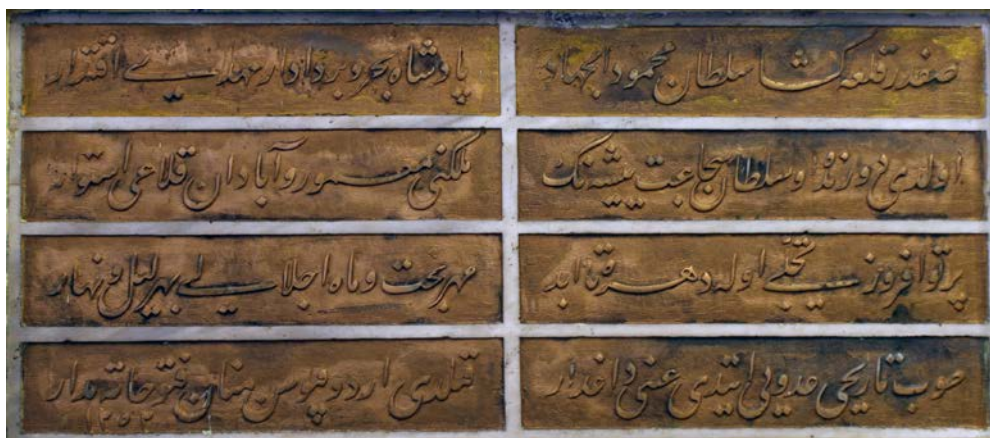 صفدر قلعه کشا سلطان محمود الجهاد
پادشاه بحر و بر دادار مهدی اقتدار
اولدی و سلطان شجاعت پیشه نک
ملکنی معمور و آبادان قلاعی استوار
پرتو افروز تجلی اوله دهره تا ابد
مهر بخت و ماه اجلالی بهر لیل و نهار
تاریخی عدویی ایتدی داغدار
قیلدی بنیان فتوحاته مدار